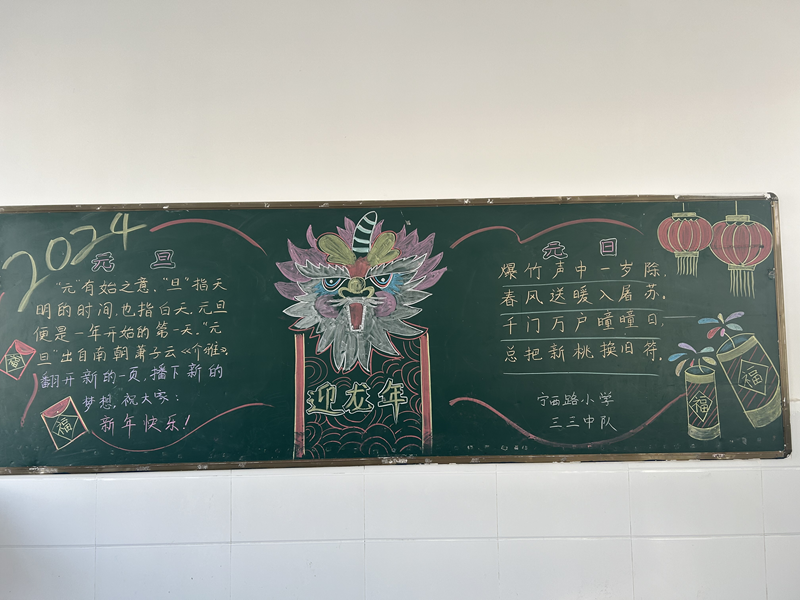 2024
元旦
"元"有始之意,"旦"指天
明的时间,也指白天,元旦
便是一年开始的第一天."元
旦"出自南朝萧子云《介雅》,
翻开新的一页,播下新的
梦想,祝大家:
新年快乐!
春
福
迎龙年
元旦
爆竹声中一岁除,
春风送暖入屠苏。
千门万户曈曈日,
总把新桃换旧符,
宁西路小学
三三中队
福
福